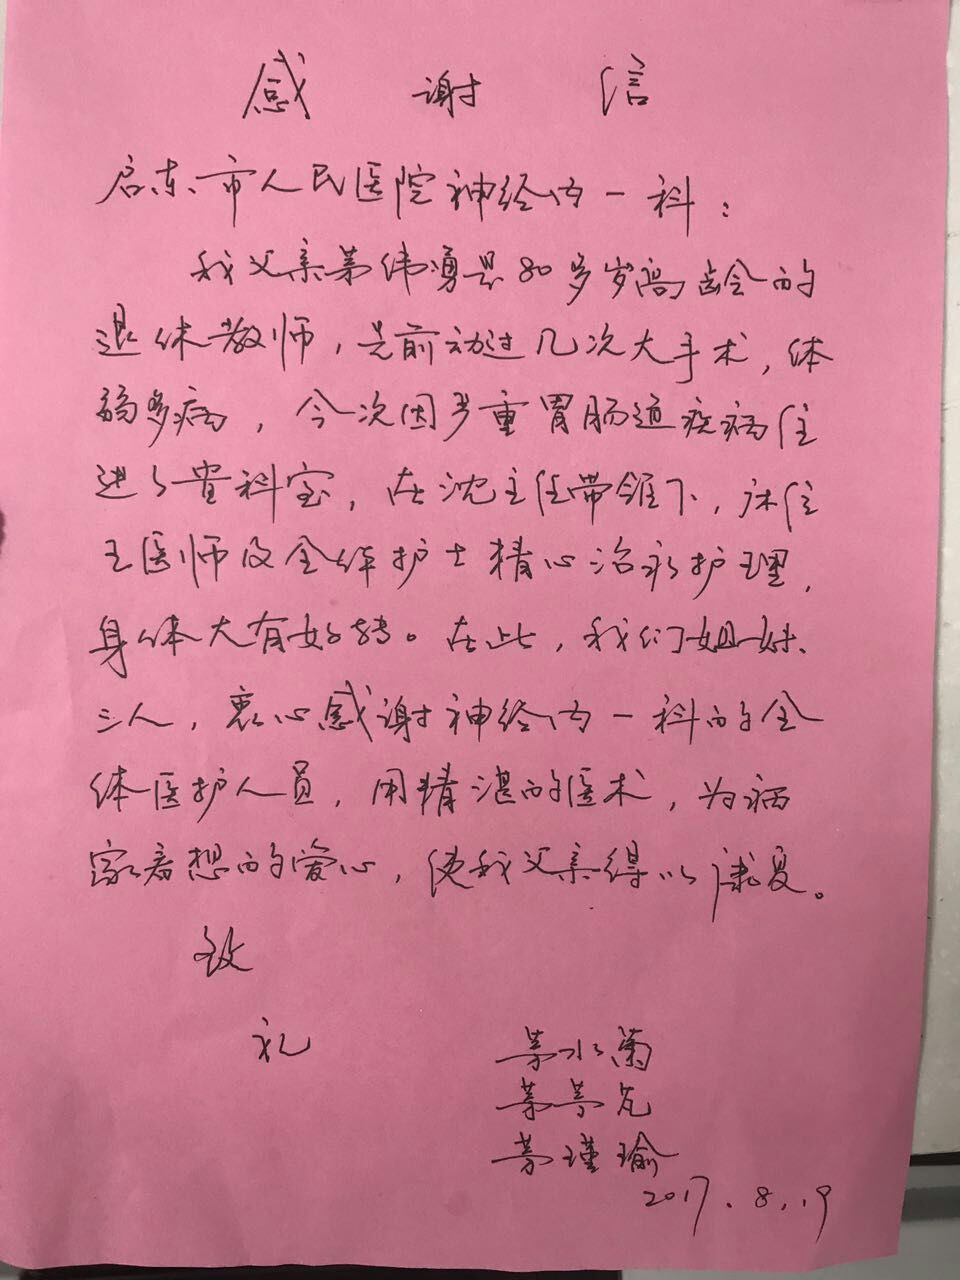 感谢信
启东市人民医院神经内一科：
我父亲茅纬勇是80多岁高龄的
退休教师，先前动过几次大手术，体
弱多病，今次因严重胃肠道疾病住
进了贵科室，在沈主任带领下，床位
王医师及全体护士精心治疗护理，
身体大有好转。在此，我们姐妹
三人，衷心感谢神经内一科的全
体医护人员，用精湛的医术，为病
家着想的爱心，使我父亲得以康复。
致
礼
茅水菊
茅
茅瑾瑜
2017.8.19